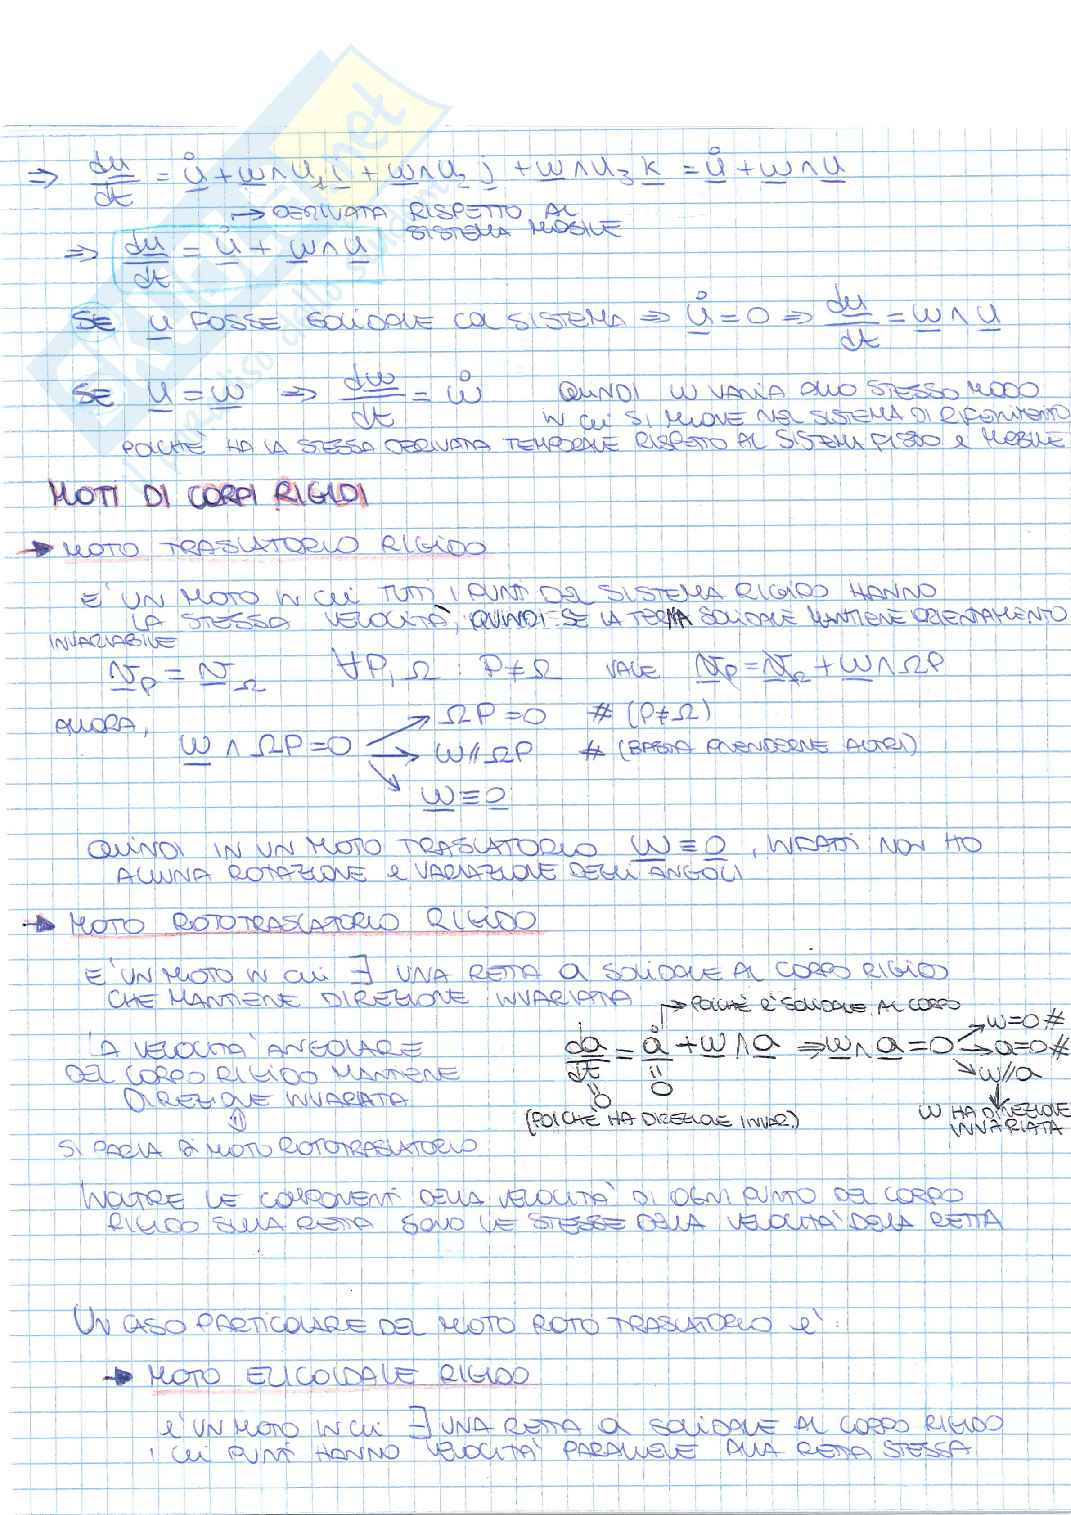 ⇒ du/dt = ů + ω∧u₁i + ω∧u₂j + ω∧u₃k = ů + ω∧u
→ DERIVATA RISPETTO AL
SISTEMA MOBILE
⇒ du/dt = ů + ω∧u
SE u FOSSE SOLIDALE COL SISTEMA ⇒ ů = 0 ⇒ du/dt = ω∧u
SE u = ω ⇒ dω/dt = ω̊ QUINDI ω VARIA ALLO STESSO MODO
IN CUI SI MUOVE NEL SISTEMA DI RIFERIMENTO
POICHÈ HA LA STESSA DERIVATA TEMPORALE RISPETTO AL SISTEMA FISSO e MOBILE
MOTI DI CORPI RIGIDI
→ MOTO TRASLATORIO RIGIDO
E' UN MOTO IN CUI TUTTI I PUNTI DEL SISTEMA RIGIDO HANNO
LA STESSA VELOCITÀ, QUINDI SE LA TERNA SOLIDALE MANTIENE ORIENTAMENTO
INVARIABILE
v_P = v_Ω ∀P, Ω : P≠Ω VALE v_P = v_Ω + ω∧ΩP
ALLORA,
ω∧ΩP = 0
ΩP = 0 # (P≠Ω)
ω//ΩP # (BASTA PRENDERNE ALTRI)
ω ≡ 0
QUINDI IN UN MOTO TRASLATORIO ω ≡ 0, INFATTI NON HO
ALCUNA ROTAZIONE e VARIAZIONE DEGLI ANGOLI
→ MOTO ROTOTRASLATORIO RIGIDO
E' UN MOTO IN CUI ∃ UNA RETTA a SOLIDALE AL CORPO RIGIDO
CHE MANTIENE DIREZIONE INVARIATA
→ POICHÈ È SOLIDALE AL CORPO
LA VELOCITÀ ANGOLARE
DEL CORPO RIGIDO MANTIENE
DIREZIONE INVARIATA
⇕
SI PARLA DI MOTO ROTOTRASLATORIO
da/dt = å + ω∧a ⇒ ω∧a = 0
ω=0 #
a=0 #
ω//a
= 0
= 0
(POICHÈ HA DIREZIONE INVAR.)
ω HA DIREZIONE
INVARIATA
INOLTRE LE COMPONENTI DELLA VELOCITÀ DI OGNI PUNTO DEL CORPO
RIGIDO SULLA RETTA SONO LE STESSE DELLA VELOCITÀ DELLA RETTA
UN CASO PARTICOLARE DEL MOTO ROTOTRASLATORIO e':
→ MOTO ELICOIDALE RIGIDO
e' UN MOTO IN CUI ∃ UNA RETTA a SOLIDALE AL CORPO RIGIDO
I CUI PUNTI HANNO VELOCITÀ PARALLELE ALLA RETTA STESSA